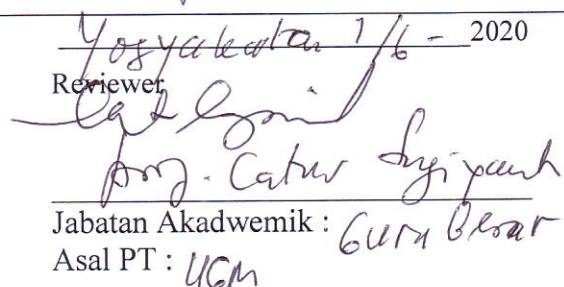 Yogyakarta 1/6 - 2020
Reviewer
Prof. Catur Sugiyanto
Jabatan Akadwemik : Guru Besar
Asal PT : UGM